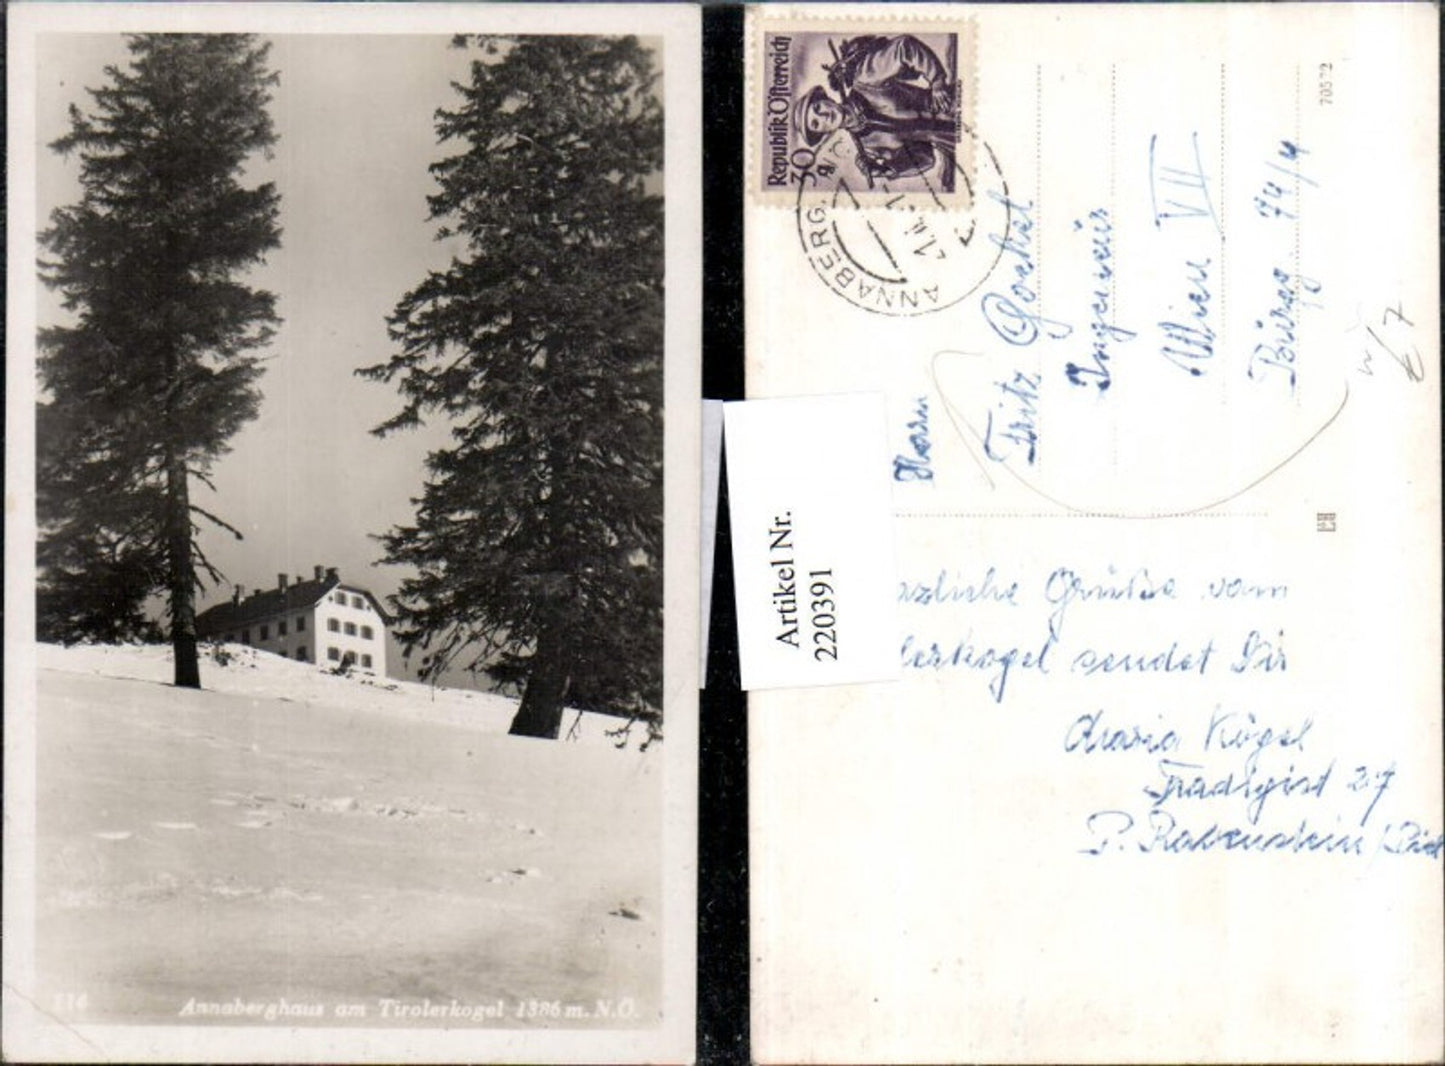 114
Annaberghaus am Tirolerkogel 1386 m. N.Ö.
Republik Österreich
30
g
ANNABERG, NÖ
Artikel Nr.
220391
Herrn
Fritz Gockel
Ingenieur
Wien VII
Burgg. 74/4
70572
€ 7
zliche Grüße vom
lerkogel sendet Dir
Maria Kögel
Tradigist 27
P. Rabenstein/